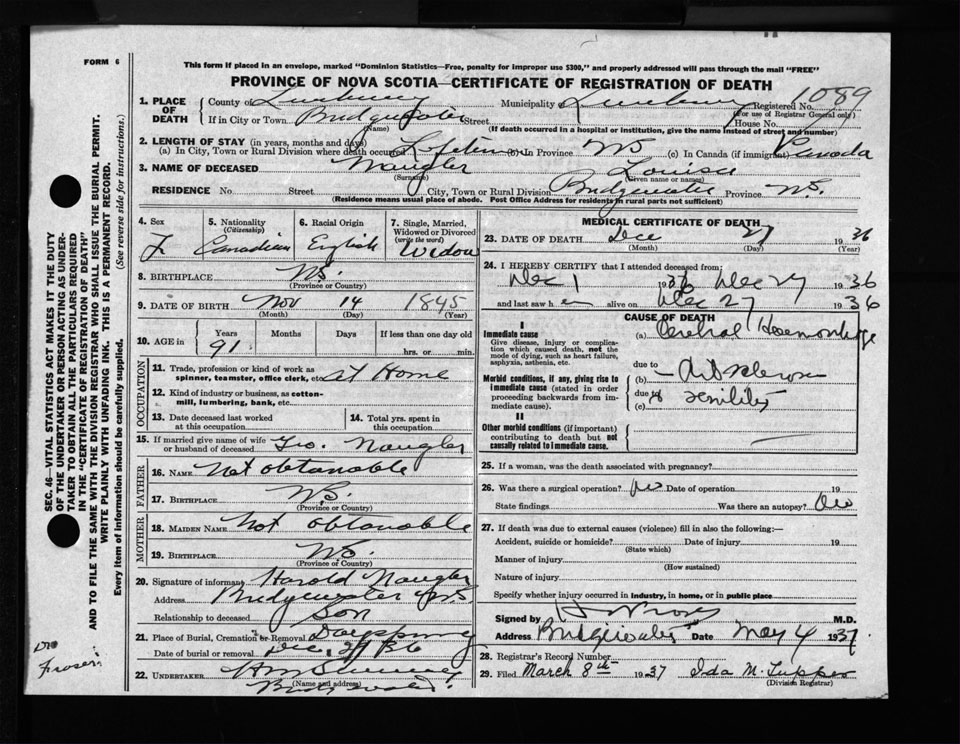 FORM 6
This form if placed in an envelope, marked "Dominion Statistics—Free, penalty for improper use $300," and properly addressed will pass through the mail "FREE"
PROVINCE OF NOVA SCOTIA—CERTIFICATE OF REGISTRATION OF DEATH
1. PLACE OF DEATH
County of Lunenburg Municipality Lunenburg Registered No. 1089
(For use of Registrar General only)
If in City or Town Bridgewater Street House No.
(Name) (If death occurred in a hospital or institution, give the name instead of street and number)
2. LENGTH OF STAY (in years, months and days)
(a) In City, Town or Rural Division where death occurred Lifetime (b) In Province NS (c) In Canada (if immigrant) Canada
3. NAME OF DECEASED Naugler Louisa
(Surname) (Given name or names)
RESIDENCE No. Street City, Town or Rural Division Bridgewater Province NS.
(Residence means usual place of abode. Post Office Address for residents in rural parts not sufficient)
4. Sex F
5. Nationality (Citizenship) Canadian
6. Racial Origin English
7. Single, Married, Widowed or Divorced (write the word) Widow
8. BIRTHPLACE NS.
(Province or Country)
9. DATE OF BIRTH Nov 14 1845
(Month) (Day) (Year)
10. AGE in Years 91 Months Days If less than one day old
hrs. or min.
OCCUPATION
11. Trade, profession or kind of work as spinner, teamster, office clerk, etc. At Home
12. Kind of industry or business, as cotton-mill, lumbering, bank, etc.
13. Date deceased last worked at this occupation
14. Total yrs. spent in this occupation
15. If married give name of wife or husband of deceased Geo. Naugler
FATHER
16. NAME Not obtanable
17. BIRTHPLACE NS.
(Province or Country)
MOTHER
18. MAIDEN NAME Not obtanable
19. BIRTHPLACE NS.
(Province or Country)
20. Signature of informant Harold Naugler
Address Bridgewater NS.
Relationship to deceased Son
21. Place of Burial, Cremation or Removal Dayspring
Date of burial or removal Dec. 29/36
22. UNDERTAKER
(Name and address)
MEDICAL CERTIFICATE OF DEATH
23. DATE OF DEATH Dec 27 1936
(Month) (Day) (Year)
24. I HEREBY CERTIFY that I attended deceased from:
Dec 1 1936 Dec 27 1936
and last saw her alive on Dec 27 1936
CAUSE OF DEATH
I
Immediate cause
Give disease, injury or complication which caused death, not the mode of dying, such as heart failure, asphyxia, asthenia, etc.
(a) Cerebral Haemorrhage
due to
Morbid conditions, if any, giving rise to immediate cause (stated in order proceeding backwards from immediate cause).
(b)
due to
(c) senility
II
Other morbid conditions (if important) contributing to death but not causally related to immediate cause.
25. If a woman, was the death associated with pregnancy?
26. Was there a surgical operation? no Date of operation 19
State findings Was there an autopsy? no
27. If death was due to external causes (violence) fill in also the following:—
Accident, suicide or homicide? Date of injury 19
(State which)
Manner of injury
(How sustained)
Nature of injury
Specify whether injury occurred in industry, in home, or in public place
Signed by M.D.
Address Bridgewater Date May 4 1937
28. Registrar's Record Number
29. Filed March 8th 1937 Ida M. Tupper
(Division Registrar)
SEC. 46—VITAL STATISTICS ACT MAKES IT THE DUTY
OF THE UNDERTAKER OR PERSON ACTING AS UNDER-
TAKER TO OBTAIN ALL THE PARTICULARS REQUIRED
IN THE "CERTIFICATE OF REGISTRATION OF DEATH"
AND TO FILE THE SAME WITH THE DIVISION REGISTRAR WHO SHALL ISSUE THE BURIAL PERMIT.
WRITE PLAINLY WITH UNFADING INK. THIS IS A PERMANENT RECORD.
Every item of information should be carefully supplied. (See reverse side for instructions.)